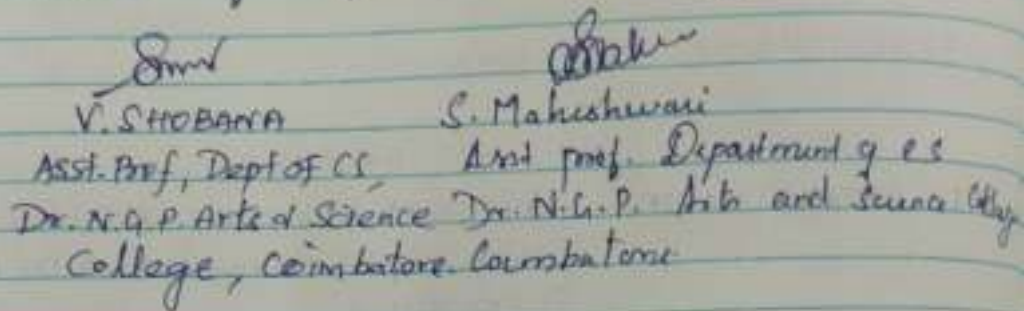 V. SHOBANA
Asst. Prof, Dept of CS,
Dr. N.G.P. Arts & Science
College, Coimbatore.
S. Maheshwari
Asst prof. Department of CS
Dr. N.G.P. Arts and Science College
Coimbatore